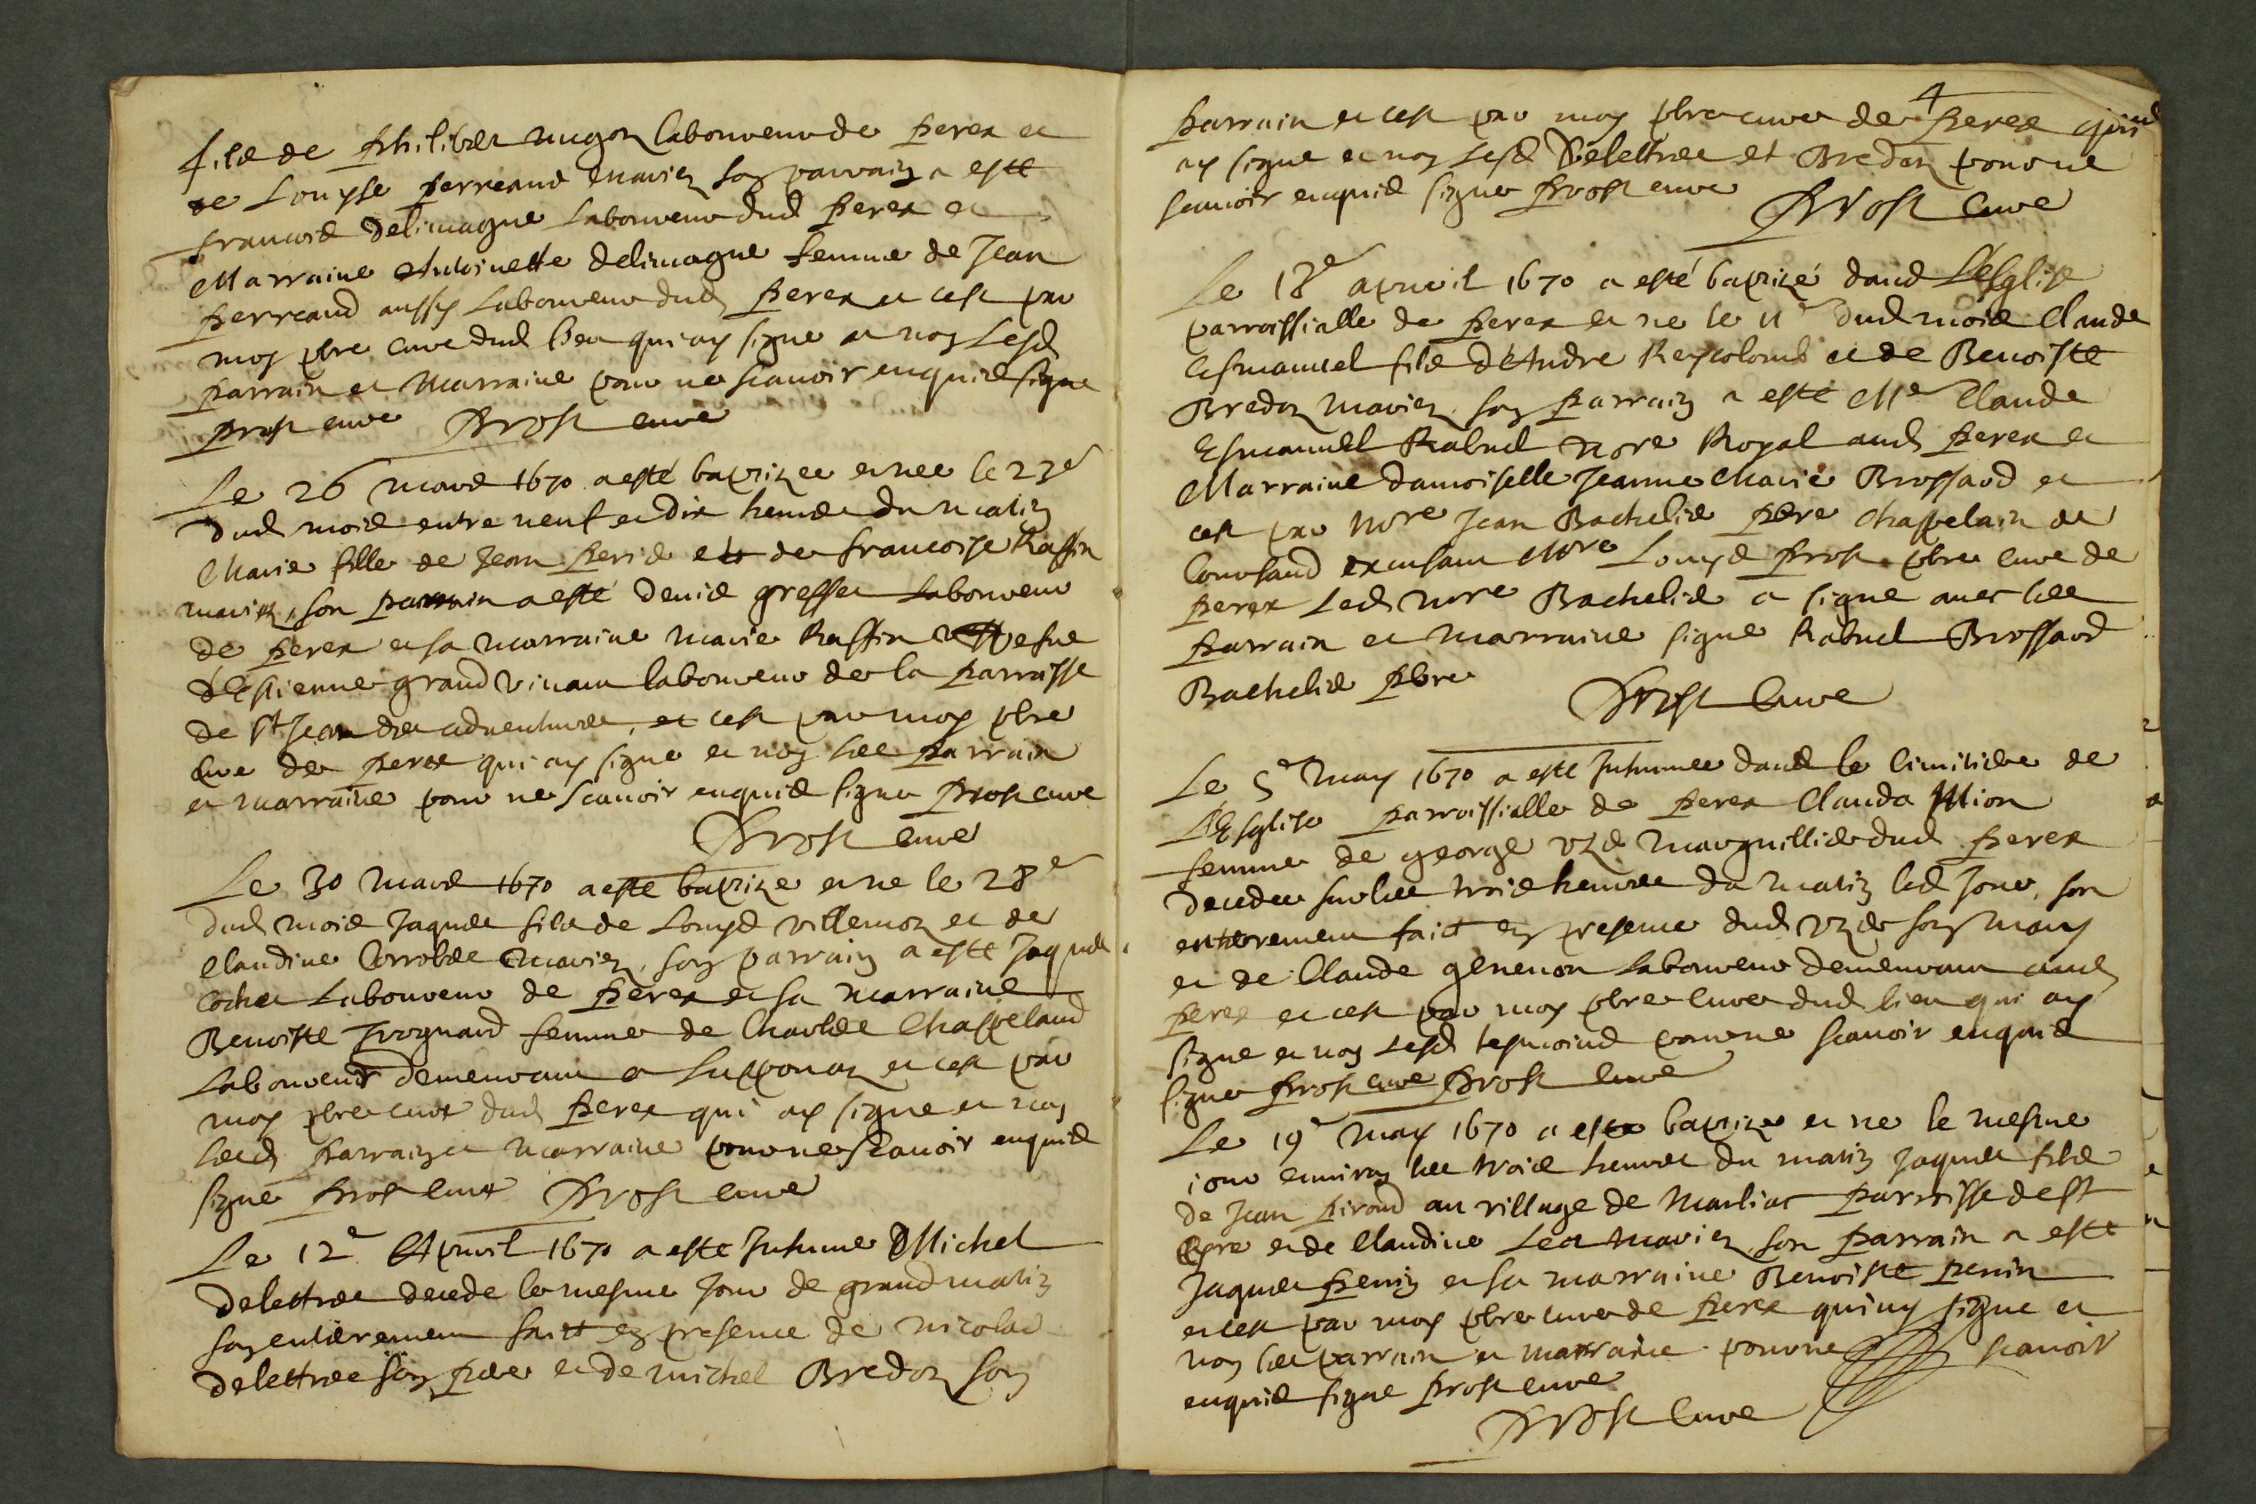 fils de Philibert Mugon laboureur de Perex et
de Louyse Perreaud mariez son parrain a esté
Francois Delimagne laboureur dud Perex et
Marraine Antoinette delimagne femme de Jean
Perreaud aussy Laboureur dud Perex et cest par
moy pbre cure dud lieu qui ay signe et non Lesd
parrain et Marraine pour ne scauoir enquis signe
Prost cure Prost cure
Le 26 mars 1670 a esté baptizee et nee le 23e
dud mois entre neuf et dix heures du matin
Marie fille de Jean Peris et de francoise Raffin
mariez, son parrain a esté Denis greffet Laboureur
de Perex et sa marraine Marie Raffin vefue
d'Estienne grand Vinam laboureur de la Parroisse
de St Jean des aduentures, et cest par moy pbre
Cure de Perex qui ay signe et non les Parrain
et marraine pour ne scauoir enquis signe Prost cure
Prost cure
Le 30 Mars 1670 a esté baptize et ne le 28e
dud mois Jaques fils de Louys Villemoz et de
Claudine mariez, son parrain a esté Jaques
Cochet Laboureur de Perex et sa marraine
Benoiste Juognard femme de Charles Chappeland
Laboureur demeurant a Lupponaz et cest par
moy pbre cure dud Perex qui ay signe et non
lesd Parrain et marraine pour ne scauoir enquis
signe Prost cure Prost cure
Le 12e Apuril 1670 a este Inhume Michel
Delettree decede le mesme Jour de grand matin
son enterement faict en presence de nicolas
delettree son pere et de michel Bredon son
4
Parrain et cest par moy pbre cure de Perex qui
ay signe et non Lesd Delettree et Bredon pour ne
scauoir enquis signe Prost cure
Prost Cure
Le 18e apuril 1670 a esté baptizé dans L'Esglise
parroissialle de Perex et ne le 11e dud mois Claude
Esmanuel fils d'Andre Reycolomb et de Benoiste
Bredon mariez, son Parrain a esté Me Claude
Esmanuel Rabuel Nore Royal aud Perex et
Marraine damoiselle Jeanne Marie Brossard et
cest par Mre Jean Bachelis Pbre Chappelain de
Confrand excusant Mre Louys Prost pbre cure de
Perex Led Mre Bachelis a signe auec les
Parrain et marraine signe Rabuel Brossard
Bachelis Pbre
Prost Cure
Le 5e may 1670 a este Inhumee dans le Cimitiere de
L'Esglise Parroissialle de Perex Clauda Mion
femme de george Uzd marguillier dud Perex
decedee sur les trois heures du matin led Jour, son
enterrement faict en presence dud Uzd son mary
et de Claude genenon Laboureur demeurant aud
Perex et cest par moy pbre cure dud lieu qui ay
signe et non Lesd tesmoins pour ne scauoir enquis
signe Prost cure Prost Cure
Le 19e may 1670 a este baptize et ne le mesme
iour enuiron les trois heures du matin Jaques fils
de Jean Piroud au village de Marliac Parroisse de St
Cyre et de Claudine Lea mariez son Parrain a esté
Jaques Penin et sa marraine Benoiste Penin
et cest par moy pbre cure de Perex qui ay signe et
non les parrain et marraine pour ne scauoir
enquis signe Prost cure
Prost Cure